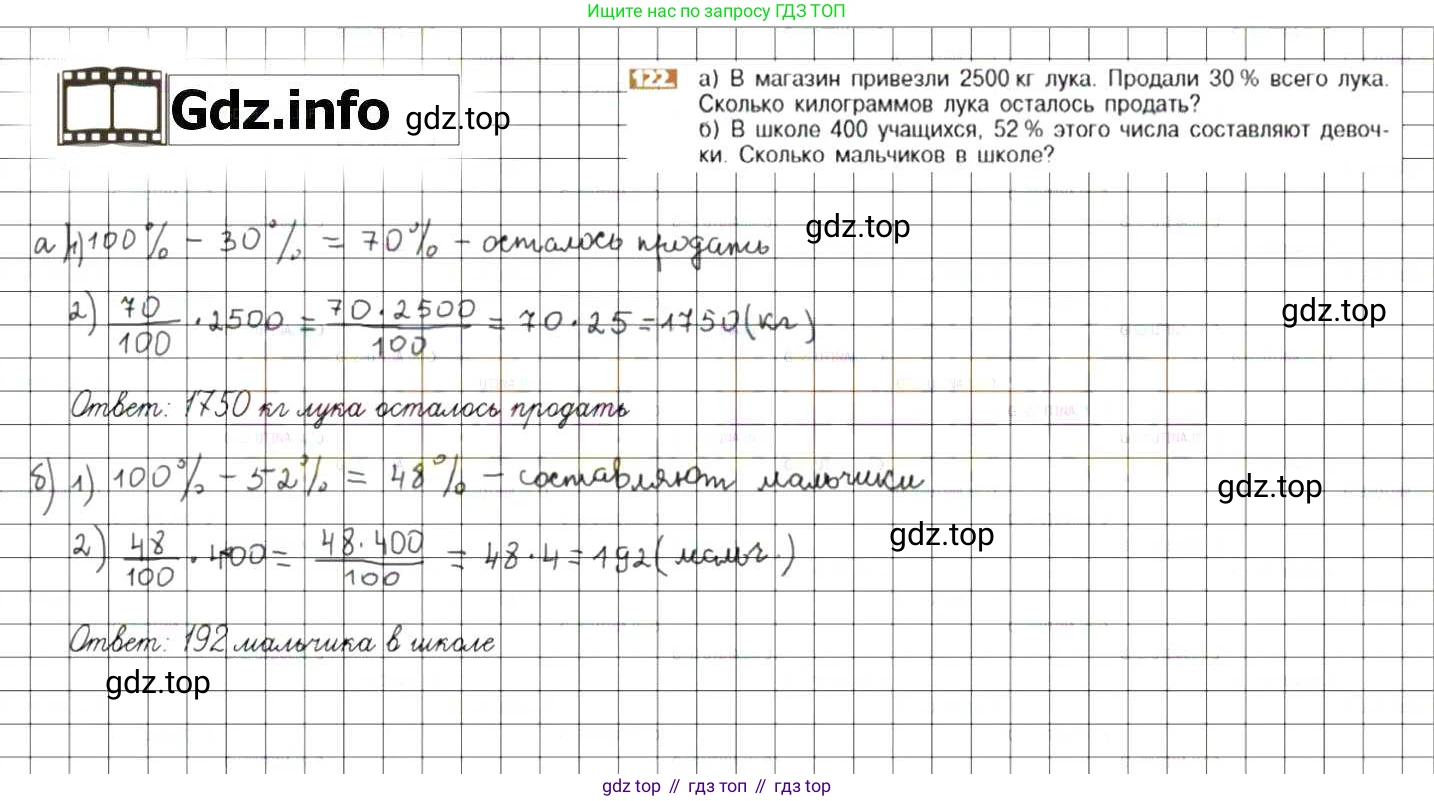 Ищите нас по запросу ГДЗ ТОП
Gdz.info gdz.top
122. а) В магазин привезли 2500 кг лука. Продали 30 % всего лука.
Сколько килограммов лука осталось продать?
б) В школе 400 учащихся, 52 % этого числа составляют девоч-
ки. Сколько мальчиков в школе?
gdz.top
а) 1) 100% - 30% = 70% - осталось продать
gdz.top
2) 70/100 · 2500 = 70·2500/100 = 70·25 = 1750 (кг)
Ответ: 1750 кг лука осталось продать
б) 1) 100% - 52% = 48% - составляют мальчики
gdz.top
gdz.top
2) 48/100 · 400 = 48·400/100 = 48·4 = 192 (мальч.)
Ответ: 192 мальчика в школе
gdz.top
gdz top // гдз топ // гдз top